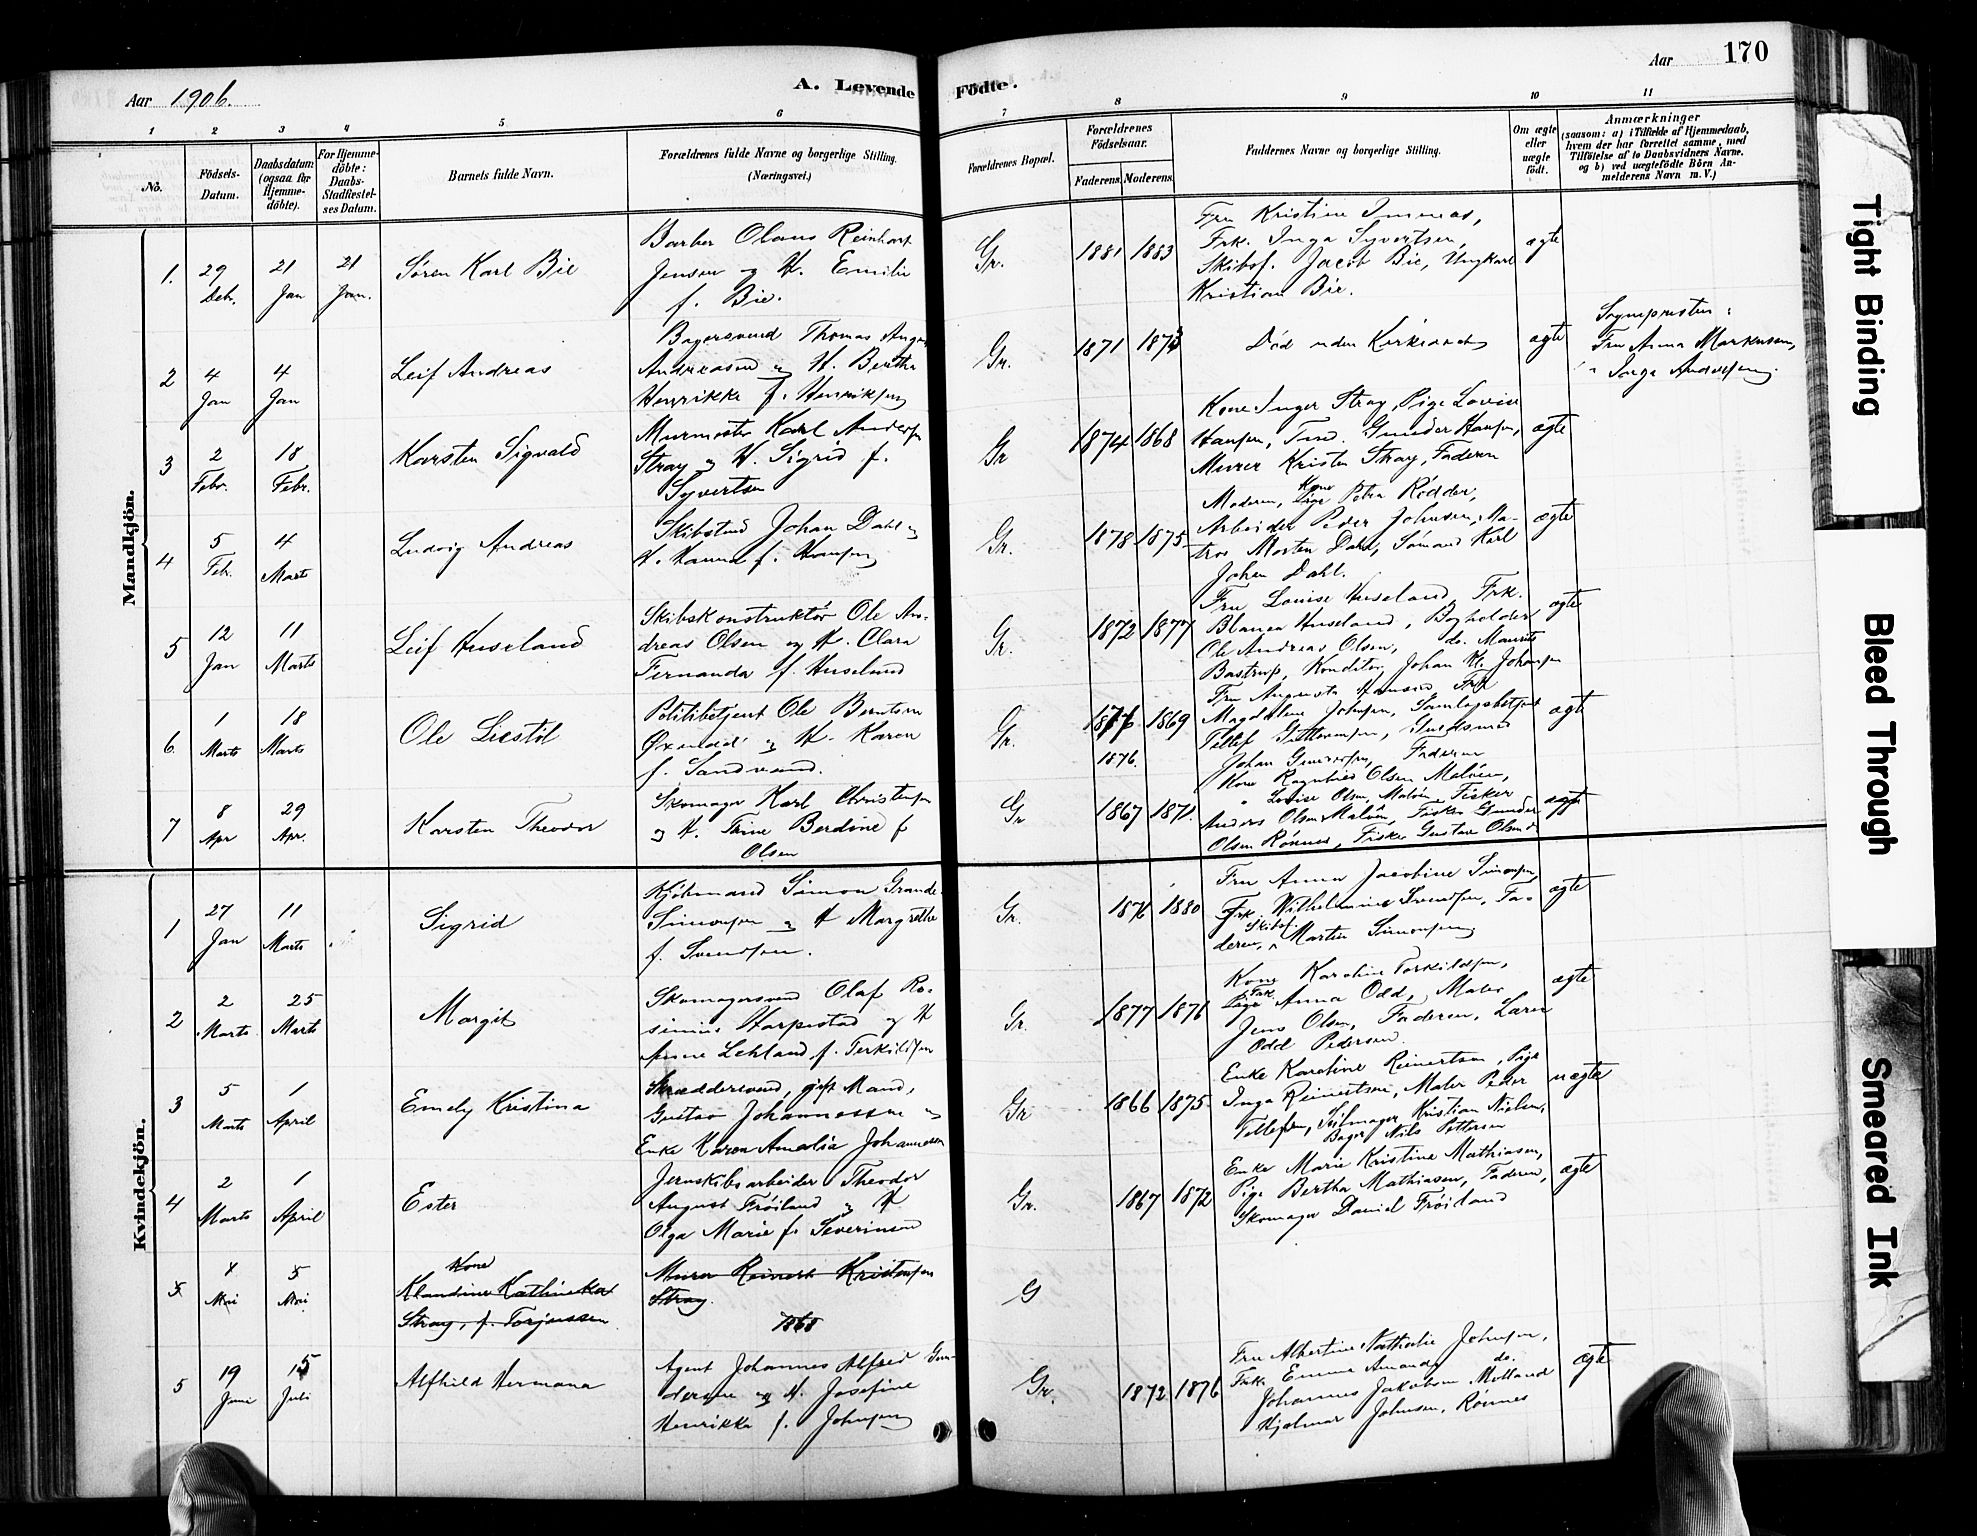 Aar 1906.
A. Levende Födte.
Aar 170
1 2 3 4 5 6 7 8 9 10 11
No.
Födsels-Datum.
Daabsdatum (ogsaa for Hjemme-döbte).
For Hjemme-döbte: Daabs-Stadfæstel-ses Datum.
Barnets fulde Navn.
Forældrenes fulde Navne og borgerlige Stilling.
(Næringsvei.)
Forældrenes Bopæl.
Forældrenes Födselsaar.
Faderens. Moderens.
Faddernes Navne og borgerlige Stilling.
Om ægte eller uægte födt.
Anmærkninger
(saasom: a) i Tilfælde af Hjemmedaab,
hvem der har forrettet samme, med
Tilföielse af to Daabsvidners Navne,
og b) ved uægtefödte Börn An-
melderens Navn m. V.)
Mandkjön.
1. 29 Deb. 21 Jan 21 Jan. Søren Karl Bie
Barber Olaus Reinhart
Jensen og H. Emilie
f. Bie.
Gr. 1881 1883
Fru Kristine
Frk. Inga Syvertsen,
Skibsf. Jacob Bie, Ungkarl
Kristian Bie.
ægte
2 4 Jan 4 Jan Leif Andreas
Bagersvend Thomas
Andreasen og H. Bertha
Henrikke f. Henriksen
Gr. 1871 1873
Död uden Kirkedaab
ægte
Sognepresten:
Fru Anna Markussen,
" Inga Andersen
3 2 Febr. 18 Febr. Karsten Sigvald
Murmester Karl Andersen
Stray og H. Sigrid f.
Syvertsen
Gr 1874 1868
Kone Inger Stray, Pige Lovise
Hansen, Gunder Hansen,
Murer Kristen Stray, Faderen
ægte
4 5 Feb. 4 Marts Ludvig Andreas
Skibstmd Johan Dahl og
H. Hanna f. Hansen
Gr. 1878 1875
Moderen, Kone Petra Rödder,
Arbeider Peder Johnsen, Ma-
tros Morten Dahl, Sömand Karl
Johan Dahl.
ægte
5 12 Jan 11 Marts Leif Huseland
Skibskonstruktör Ole An-
dreas Olsen og H. Clara
Fernanda f. Huseland
Gr. 1872 1877
Fru Louise Huseland, Frk.
Blanca Huseland, Bogholder
Ole Andreas Olsen, do. Maurits
Bastrup, Konditor Johan Kl. Johansen
ægte
6. 1 Marts 18 Marts Ole Liestöl
Politibetjent Ole Berntsen
og H. Karen
f. Sandvand.
Gr. 1869
1876.
Fru Augusta Hansen Frk
Magdalene Johnsen, Samlagsbetjent
Tellef Guttormsen, Guldsmed
Johan Gundersen, Faderen
ægte
7 8 Apr 29 Apr. Karsten Theodor
Skomager Karl Christensen
og H. Trine Berdine f
Olsen
Gr 1867 1871.
Kone Ragnhild Olsen Malöen,
" Lovise Olsen, Malöen, Fisker
Anders Olsen Malöen, Fisker Gunder
Olsen Rönnes, Fisker Gustav Olsen do
ægte
Kvindekjön.
1 27 Jan 11 Marts Sigrid
Kjöbmand Simon Grande
Simonsen og H Margrethe
f. Svendsen.
Gr. 1876 1880
Fru Anna Jacobine Simonsen,
Frk. Wilhelmine Svendsen, Fa-
deren, Skibsf. Martin Simonsen
ægte
2 2 Marts 25 Marts Margit
Skomagersvend Olaf Ro-
sinius Harpestad og H
Anne Lehland f. Terkildsen
Gr. 1877 1876
Kone Karoline Torkildsen,
Frk Anna Odd, Maler
Jens Olsen, Faderen, Lærer
Odd Pedersen.
ægte
3 5 Marts 1 April Emely Kristina
Skræddersvend, gift Mand,
Gustav Johannessen og
Enke Karen Amalia Johannessen
Gr. 1866 1875.
Enke Karoline Reinertsen, Pige
Inga Reinertsen, Maler Peder
Tellefsen, Seilmager Kristian Nielsen,
Bager Nils Pettersen
uægte
4 2 Marts 1 April Ester
Jernskibsarbeider Theodor
August Fröiland og H
Olga Marie f. Severinsen
Gr. 1867 1872
Enke Marie Kristine Mathiasen,
Pige Bertha Mathiasen, Faderen,
Skomager Daniel Fröiland
ægte
5 4 Mai 5 Mai Kone
Klandine Kathinka
Stray, f. Torjussen
Murer Reinert Kristensen
Stray.
1868
G
5 19 Juni 15 Juli Alfhild Hermana
Agent Johannes Alfred Gun-
dersen og H. Josefine
Henrikke f. Johnsen
Gr. 1872 1876
Fru Albertine Nathalie Johnsen,
Frk. Emma Amanda do.
Johannes Jakobsen Molland
Hjalmar Johnsen, Rönnes
ægte
Tight Binding
Bleed Through
Smeared Ink